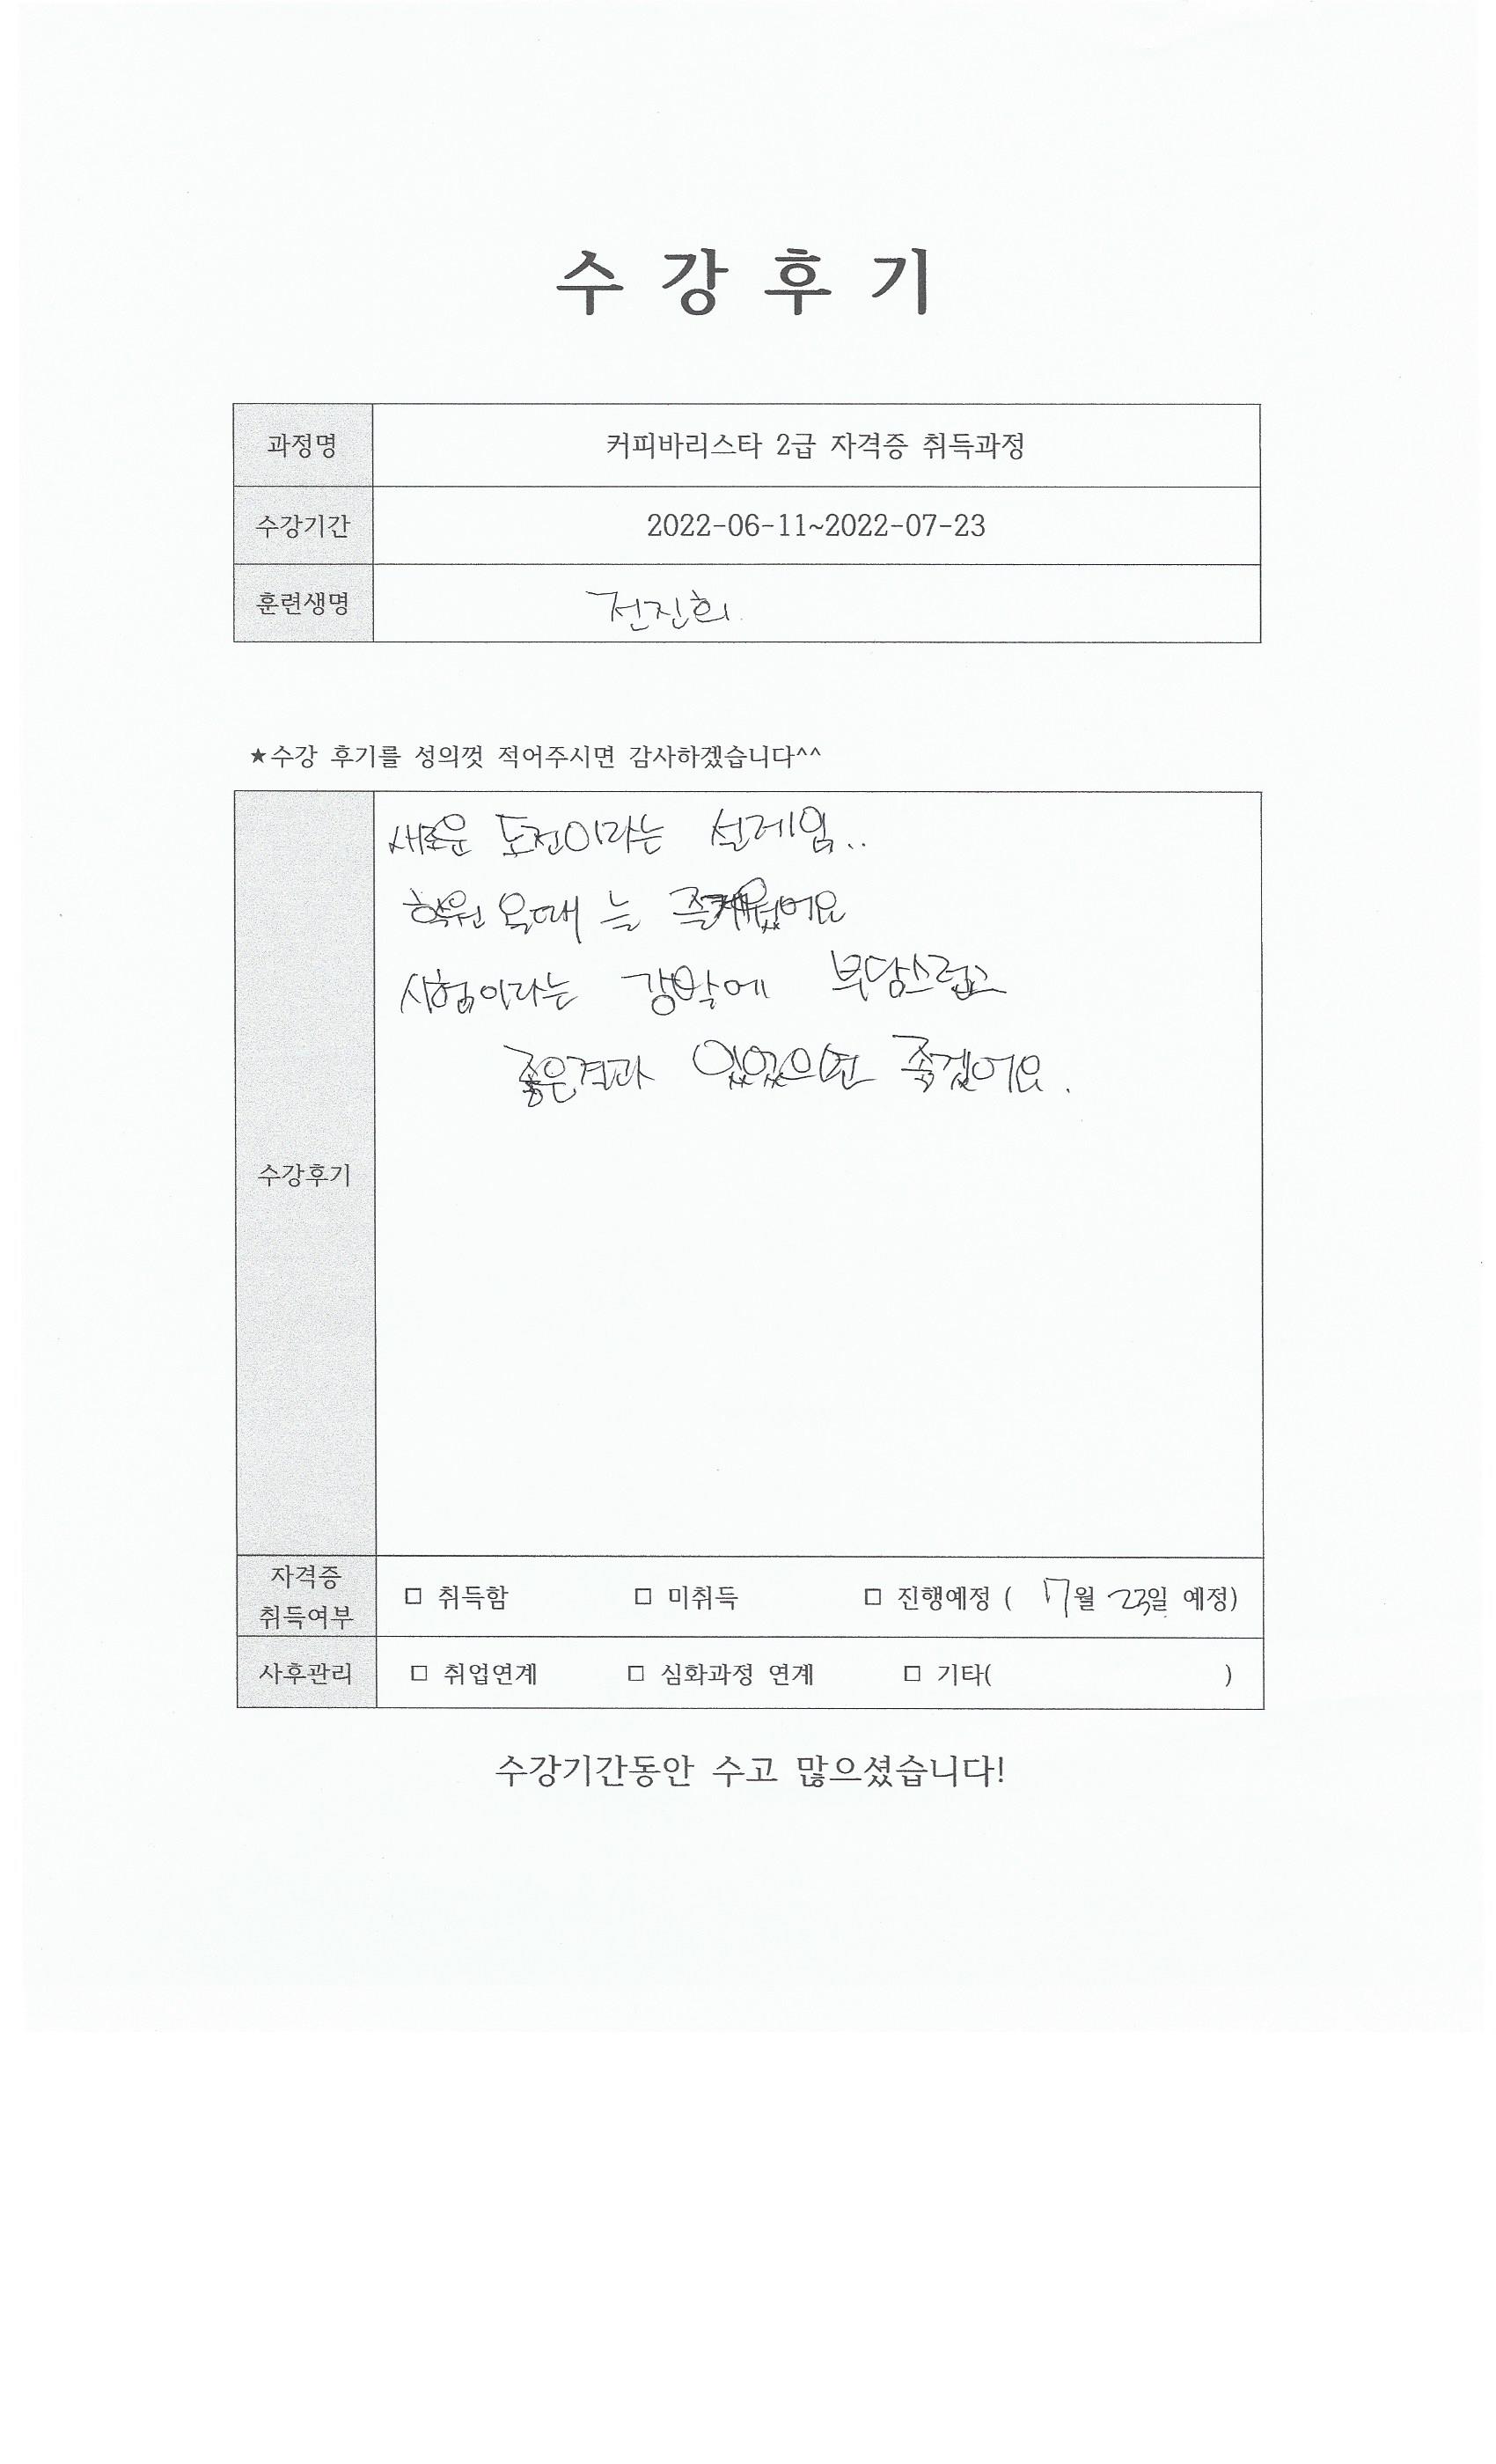 수 강 후 기
과정명 커피바리스타 2급 자격증 취득과정
수강기간 2022-06-11~2022-07-23
훈련생명 전진희
★수강 후기를 성의껏 적어주시면 감사하겠습니다^^
새로운 도전이라는 설레임..
학원 올때 는 즐거웠어요
시험이라는 강박에 부담스럽고
좋은결과 있었으면 좋겠어요.
수강후기
자격증
취득여부 □ 취득함 □ 미취득 □ 진행예정 ( 7월 23일 예정)
사후관리 □ 취업연계 □ 심화과정 연계 □ 기타( )
수강기간동안 수고 많으셨습니다!